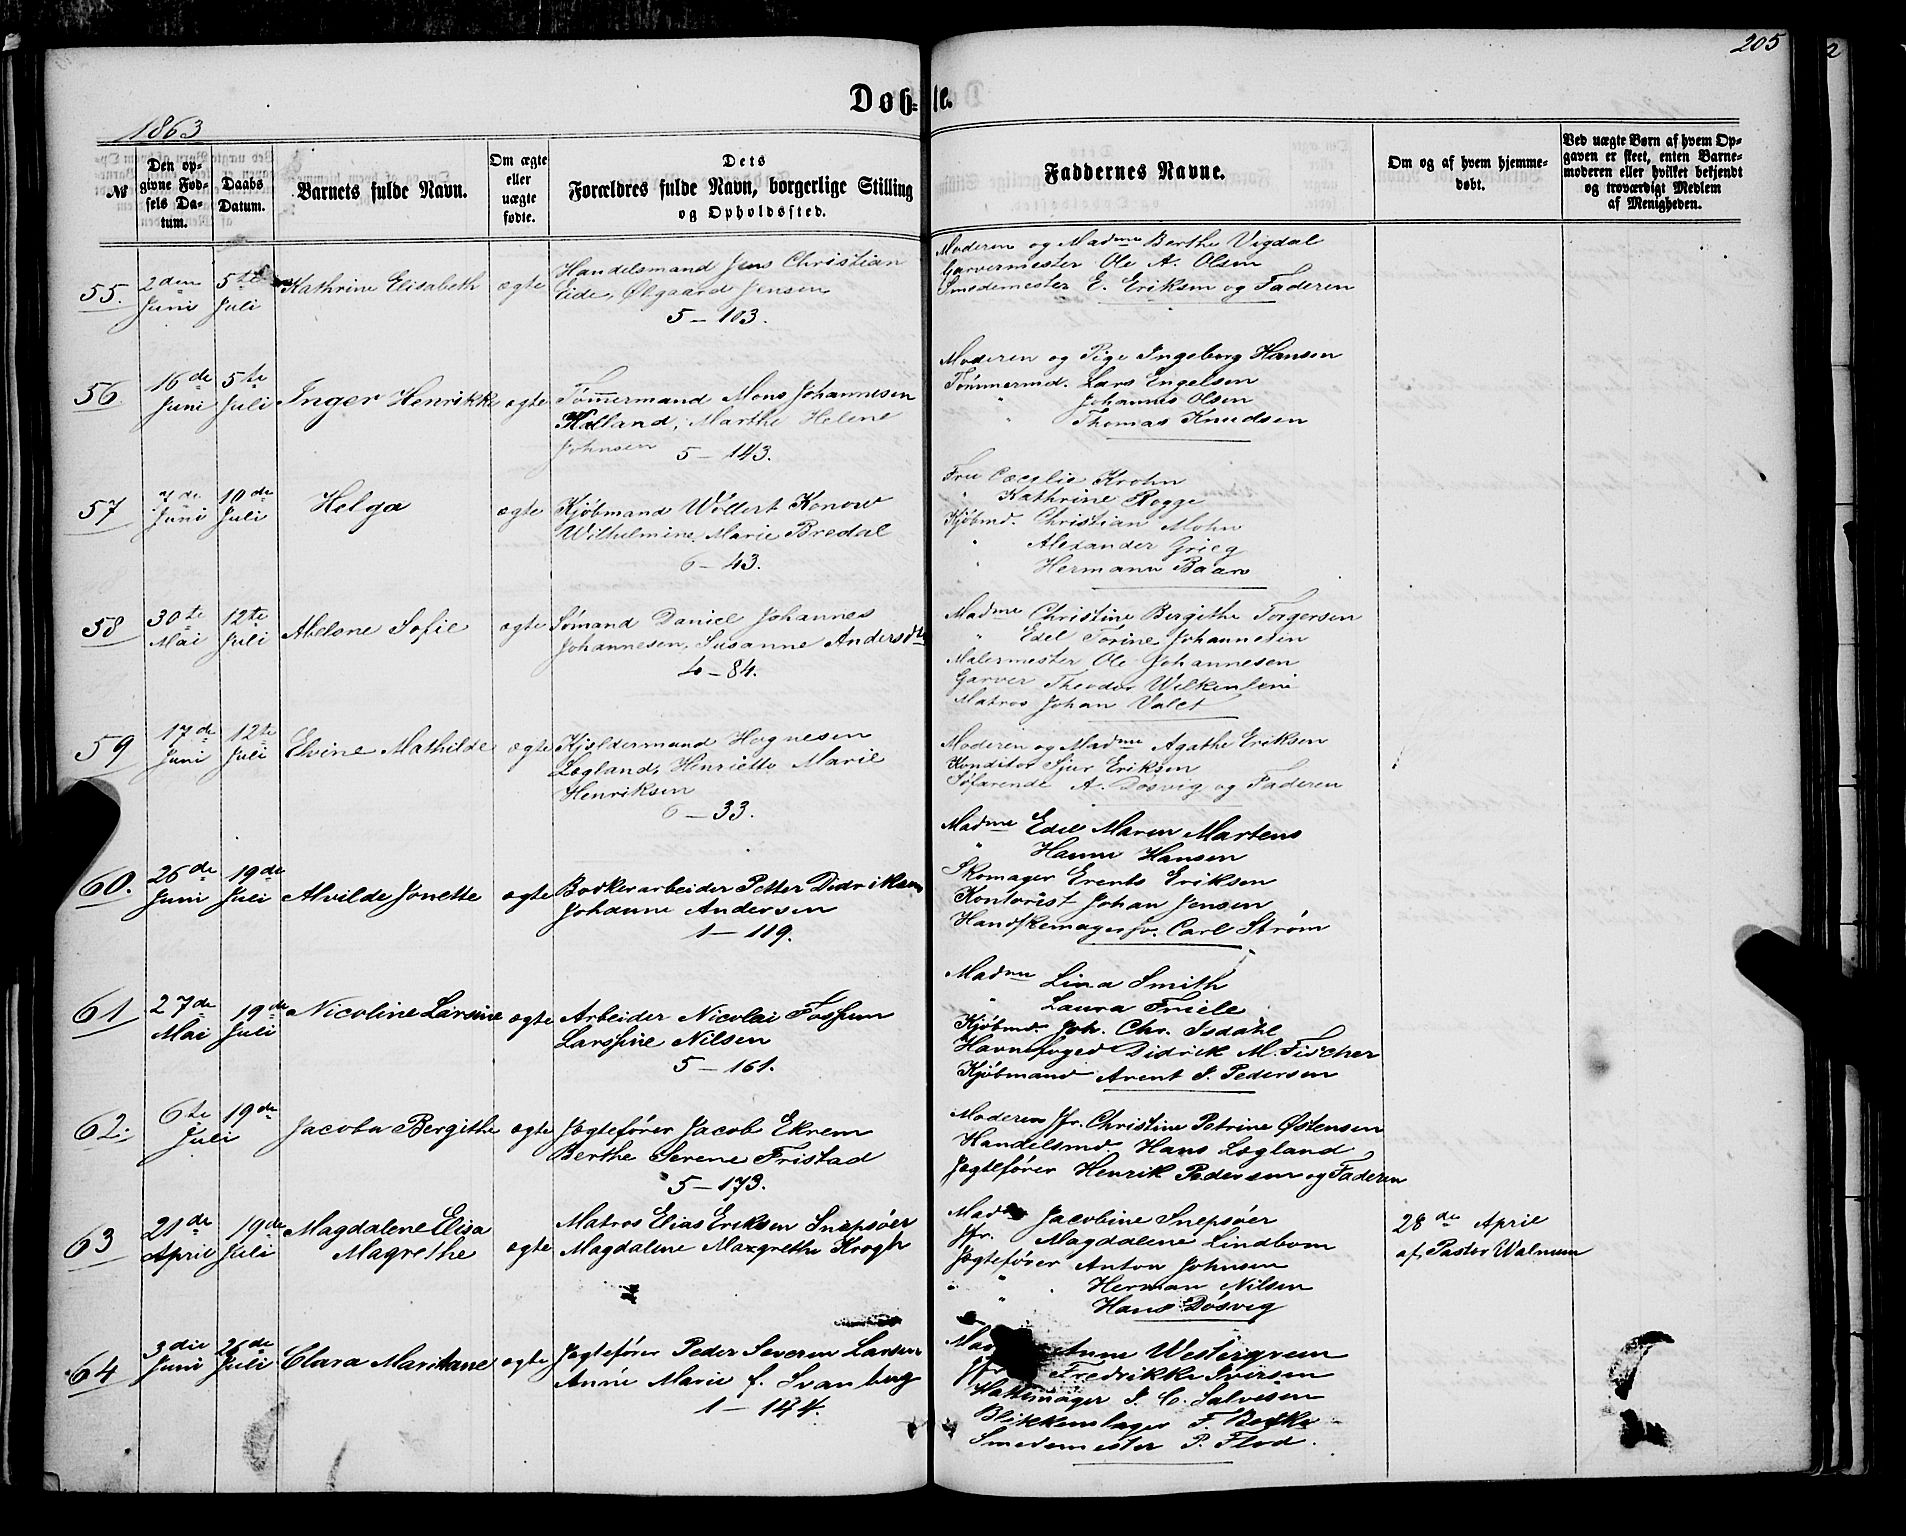 205
2
Døbte.
1863
№
Den opgivne Fødsels Datum.
Daabs Datum.
Barnets fulde Navn.
Om ægte eller uægte fødte.
Dets Forældres fulde Navn, borgerlige Stilling og Opholdssted.
Faddernes Navne.
Om og af hvem hjemmedøbt.
Ved uægte Børn af hvem Opgaven er skeet, enten Barnemoderen eller hvilket bekjendt og troværdigt Medlem af Menigheden.
55. 2den Juni 5te Juli Kathrine Elisabeth ægte
Handelsmand Jens Christian
Eide, Ølegaard Jensen
5 – 103.
Moderen og Madme Berthe Vigdal
Garvermester Ole A. Olsen
Smedemester E. Eriksen og Faderen
56 16de Juni 5te Juli Inger Henrikke ægte
Tömmermand Mons Johannesen
Holland, Marthe Helene
Johnsen 5 – 143.
Moderen og Pige Ingeborg Hansen
Tömmermd. Lars Engelsen
" Johannes Olsen
" Thomas Knudsen
57 7de Juni 10de Juli Helga ægte
Kjöbmand Wollert Konow
Wilhelmine Marie Bredal
6 – 43.
Fru Cæcelie Krohn
" Kathrine Rogge
Kjöbmd. Christian Mohn
" Alexander Grieg
" Hermann Baars
58 30te Mai 12te Juli Abelone Sofie ægte
Sömand Daniel Johannes
Johannesen, Susanne Andersdtr
4 – 84.
Madme Christine Bergithe Torgersen
" Edel Torine Johannesen
Malermester Ole Johannesen
Garver Theodor
Matros Johan Valet
59 17de Juni 12te Juli Elvine Mathilde ægte
Kjeldermand Hognesen
Løgland, Henriette Marie
Henriksen
6 – 33.
Moderen og Madme Agathe Eriksen
Konditor Sjur Eriksen
Söfarende A. Dösvig og Faderen
60. 26de Juni 19de Juli Alvilde Jonette ægte
Bødkerarbeider Petter Didriksen
Johanne Andersen
1 – 119.
Madme Edel Maren Martens
" Hanne Hansen
Skomager Erents Eriksen
Kontorist Johan Jensen
Handskemagersv. Carl Strøm
61 27de Mai 19de Juli Nicoline Larsine ægte
Arbeider Nicolai Fossum
Larsine Nilsen
5 – 161.
Madme Lina Smith
" Laura Friele
Kjöbmd. Joh. Chr. Isdahl
Havnefoged Didrik M. Fischer
Kjöbmand Arent J. Pedersen
62. 6te Juli 19de Jacoba Bergithe ægte
Jægtefører Jacob Ekrem
Berthe Serene Fristad
5 – 173.
Moderen Jfr. Christine Petrine Østensen
Handelsmd. Hans Løgland
Jægtefører Henrik Pedersen og Faderen
63 21de April 19de Juli Magdalene Elisa
Magrethe ægte
Matros Elias Eriksen Snepsøer
Magdalene Margrethe Krogh
Mad Jacobine Snepsøer
Jfr. Magdalene Lindbom
Jægtefører Anton Johnsen
" Herman Nilsen
" Hans Dösvig
28de April
af Pastor Walnum
64 3die Juni 26de Juli Clara Maritane ægte
Jægtefører Peder Severin Larsen
Anne Marie f. Svanberg
1 – 144.
Mad Anne Westergreen
Jfr Fredrikke Iversen
Hattemager J. C. Salvesen
Blikkenslager F.
Smedemester P. Flod.